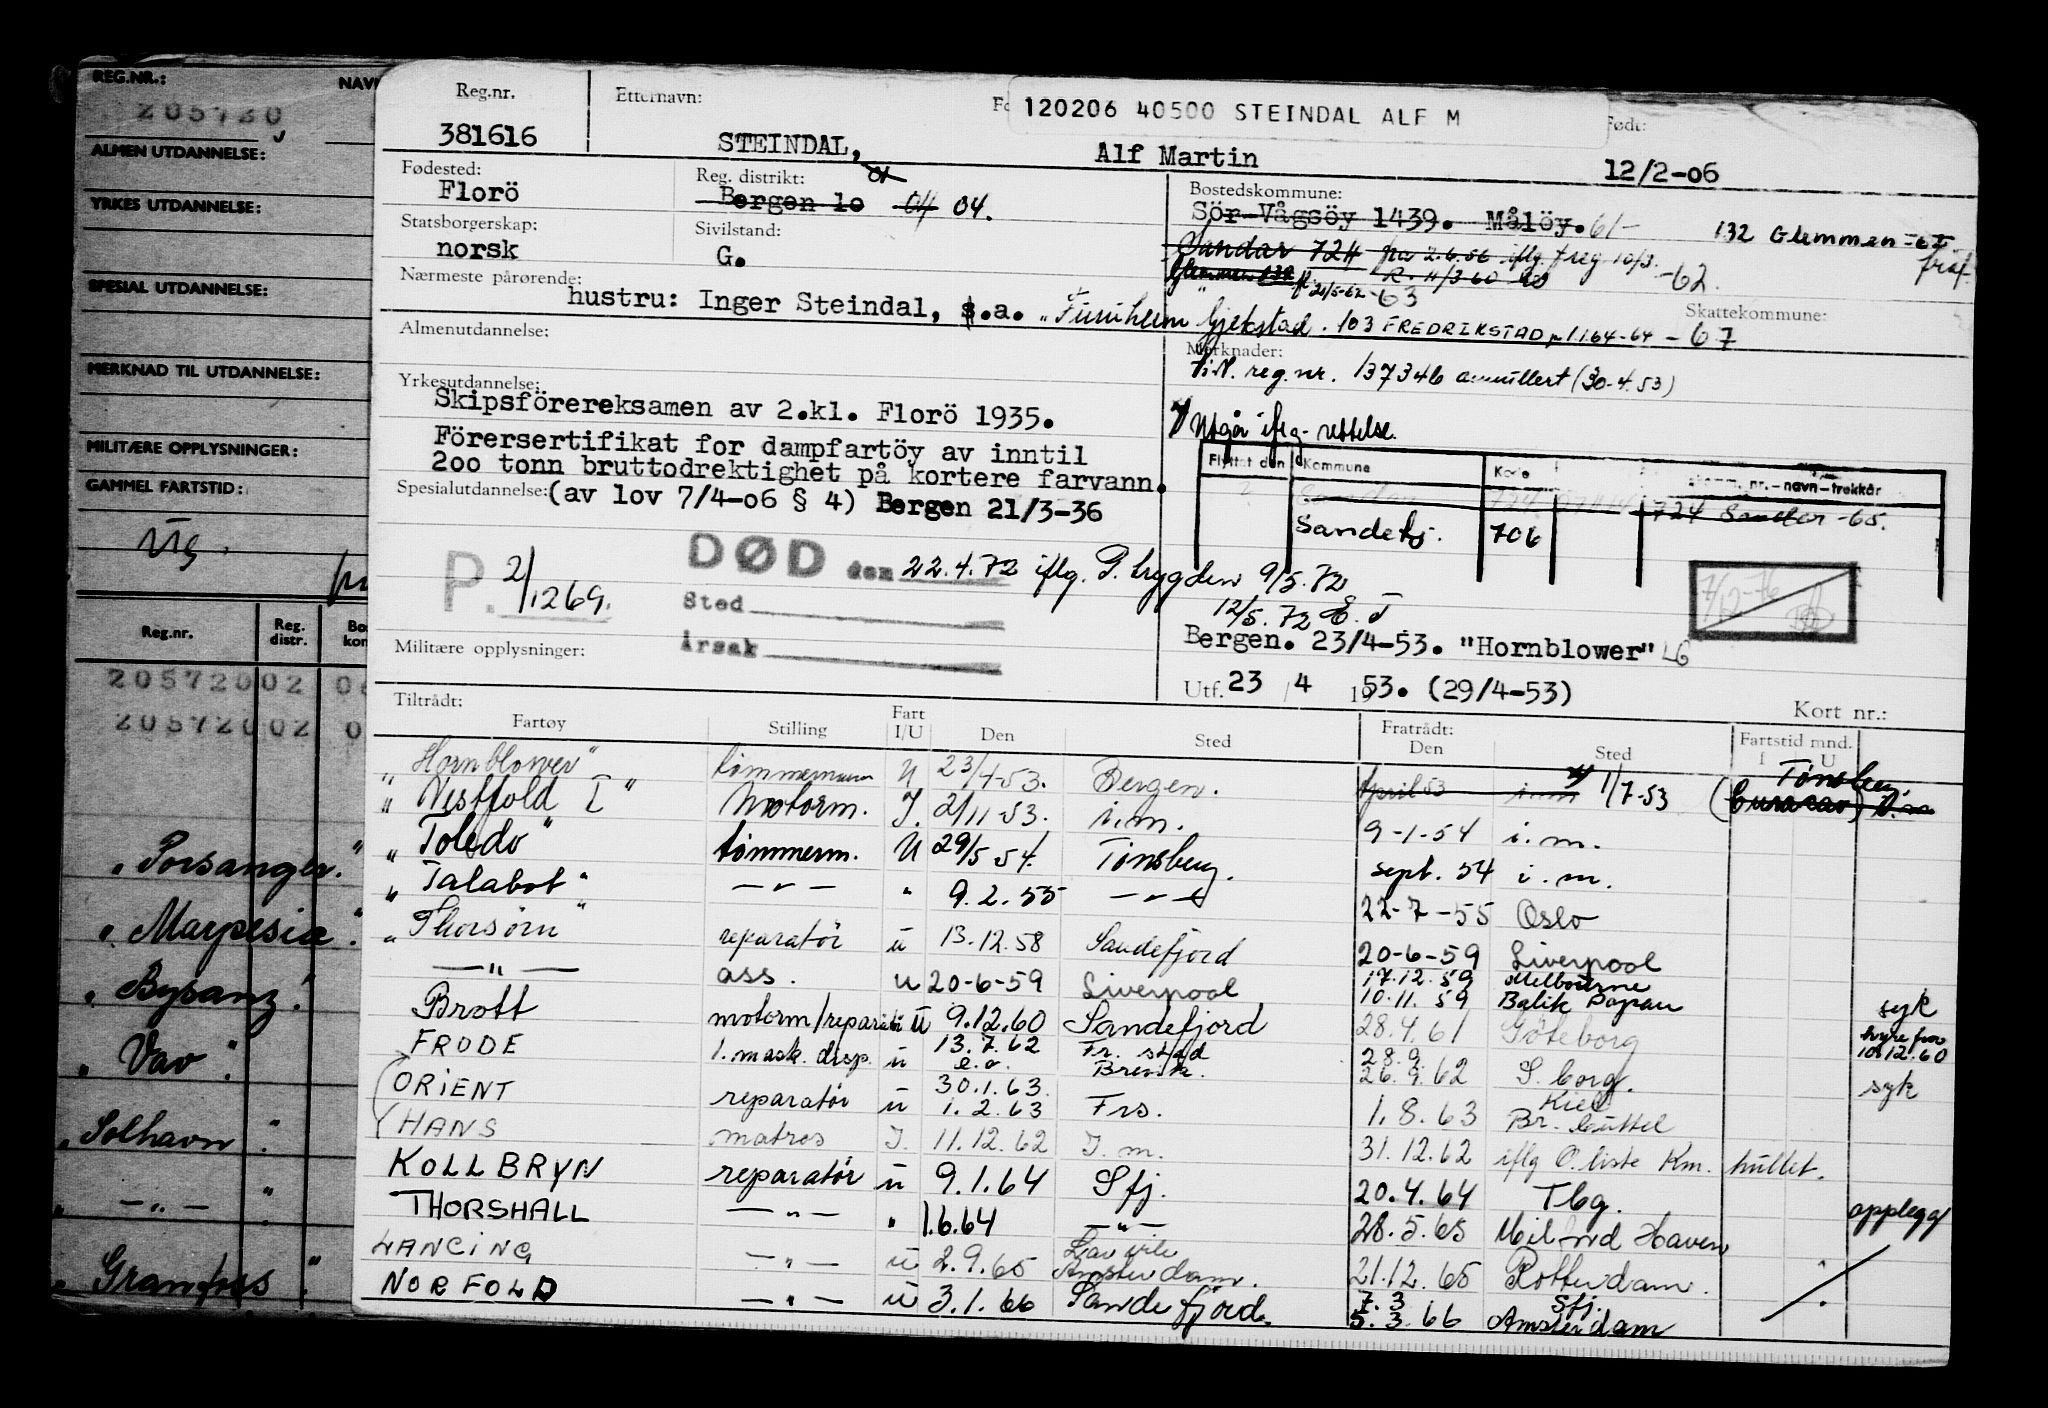 REG.NR.:
NAV
205720
ALMEN UTDANNELSE:
YRKES UTDANNELSE:
SPESIAL UTDANNELSE:
MERKNAD TIL UTDANNELSE:
MILITÆRE OPPLYSNINGER:
GAMMEL FARTSTID:
Reg.nr. Reg. distr. Bo kon
205720 02 0
205720 02 0
„ Porsanger."
„ Marpesia."
„ Bysanz."
„ Vav".
„ Solhavn"
„ — „ — "
„ Granfoss"
Reg.nr. Etternavn: Født:
120206 40500 STEINDAL ALF M
381616 STEINDAL, Alf Martin 12/2-06
Fødested: Reg. distrikt: Bostedskommune:
Florö Bergen lo 04 04. Sör-Vågsöy 1439. Målöy. 61- 132 Glemmen
Statsborgerskap: Sivilstand:
norsk G. Sandar 724 fra 2.6.56 iflg. freg 10/3.
R. 11/3 60 -62.
Nærmeste pårørende: 21/5-62 -63
hustru: Inger Steindal, s.a. „Furuheim Gjekstad. 103 FREDRIKSTAD 1.1.64-64 -67
Skattekommune:
Almenutdannelse: Merknader:
reg.nr. 137346 annullert (30-4.53)
Yrkesutdannelse:
Skipsförereksamen av 2.kl. Florö 1935.
Utgår iflg. rettelse.
Förersertifikat for dampfartöy av inntil
200 tonn bruttodrektighet på kortere farvann.
Flyttet den Kommune Kode nr.-navn-trekkår
724 Sandar -65.
Sandefj. 706
Spesialutdannelse: (av lov 7/4-06 § 4) Bergen 21/3-36
P. 2/1269.
DØD den 22.4.72 iflg. P. trygden 9/5.72
12/5.72 E.T
Sted
Årsak
7/12-76
Militære opplysninger: Bergen. 23/4-53. "Hornblower" LG
Utf. 23 / 4 1953. (29/4-53)
Tiltrådt: Kort nr.:
Fartøy Stilling Fart I/U Den Sted Fratrådt: Den Sted Fartstid mnd. I U
„Hornblower" tømmermann U 23/4-53. Bergen. April 53 i.m 1/7-53 (Curacao) Tønsberg.
„Vestfold I" Motorm. I. 2/11-53. i.m. 9-1-54 i.m.
„Toledo" tømmerm. U 29/5 54. Tønsberg. sept. 54 i.m.
„Talabot" — „ — " 9.2.55 — „ — 22-7-55 Oslo
„Thorsørn" reparatør u 13.12.58 Sandefjord 20-6-59 Liverpool
— „ — ass. u 20-6-59 Liverpool 17.12.59 Melbourne
10.11.59 Balik Papan syk
Brott motorm/reparatør u 9.12.60 Sandefjord 28.4.61 Göteborg hyre fra 10.12.60
FRODE 1. mask. disp. u 13.7.62 Fr. stad 28.9.
e.o. Brevik. 26.9.62 S.borg. syk
ORIENT reparatør u 30.1.63
1.2.63 Frs. 1.8.63 Kiel
Br. büttel
HANS matros I. 11.12.62 I.m. 31.12.62 iflg O.liste Km. hullet.
KOLLBRYN reparatør u 9.1.64 Sfj. 20.4.64 Tbg. opplegg
THORSHALL — „ — " 1.6.64 — „ — 28.5.65 Milford Haven
LANCING — „ — u 2.9.65 Amsterdam. 21.12.65 Rotterdam.
NORFOLD — „ — u 3.1.66 Sandefjord. 7.3 Sfj.
5.3.66 Amsterdam